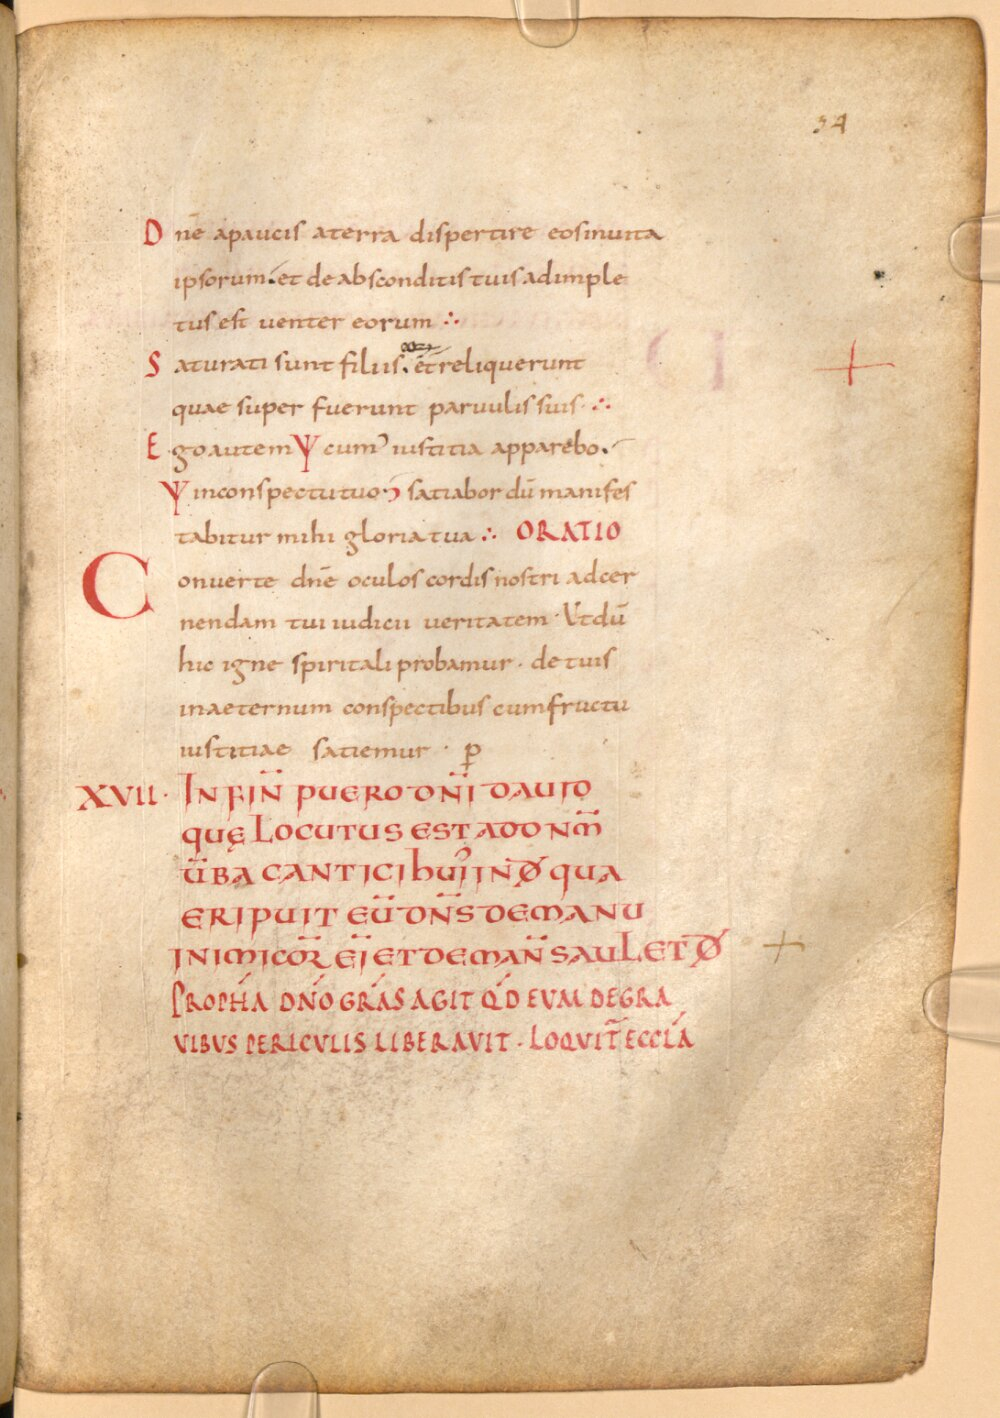 34
Dnē apaucis aterra dispertire eosinuita
ipsorum. et de absconditis tuis adimple
tus est venter eorum ∴
Saturati sunt filiis. et reliquerunt
quae super fuerunt paruulis suis ∴
Ego autem Ψ cum iustitia apparebo.
Ψ inconspectutuo satiabor dū manifes
tabitur mihi gloria tua ∴ ORATIO
Conuerte dnē oculos cordis nostri adcer
nendam tui iudicii ueritatem · Ut dū
hic igne spiritali probamur · detuis
inaeternum conspectibus cumfructu
iustitiae satiemur · p̄
XVII · IN FIN̄ PUERO DN̄I DAUID
QUĘ LOCUTUS EST AD DNM̄
ŪBA CANTICI hUI' IN DØ QUA
ERIPUIT EŪ DN̄S DE MANU
INIMICOR̄ EI ET DE MAN̄ SAUL ET DØ
PROPHA DNO GRAS AGIT QD EUM DE GRA
VIBUS PERICULIS LIBERAVIT · LOQUIT̄ ECCLA